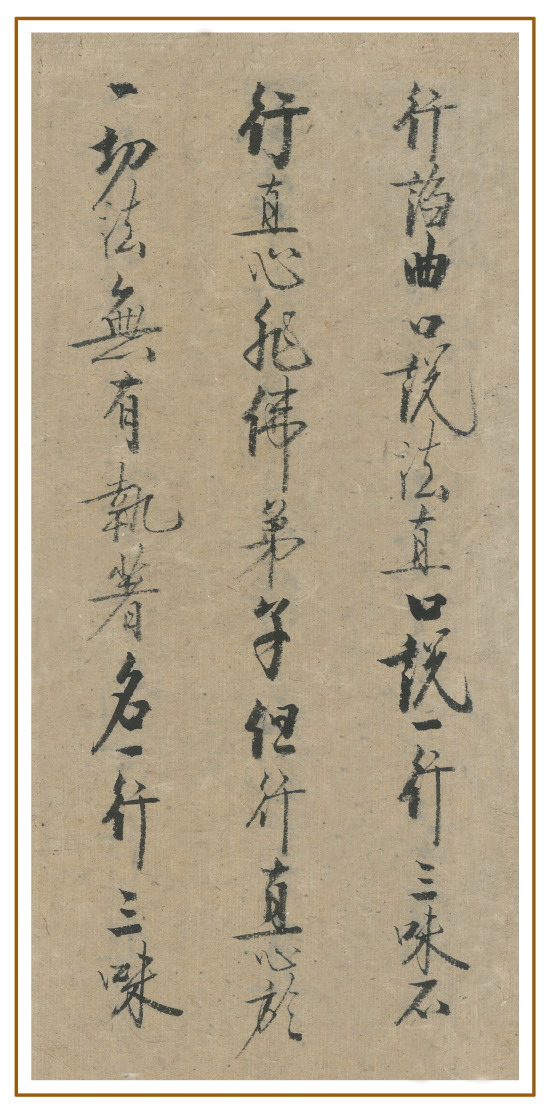 行諂曲口說法直口說一行三昧不
行直心非佛弟子但行直心於
一切法無有執著名一行三昧